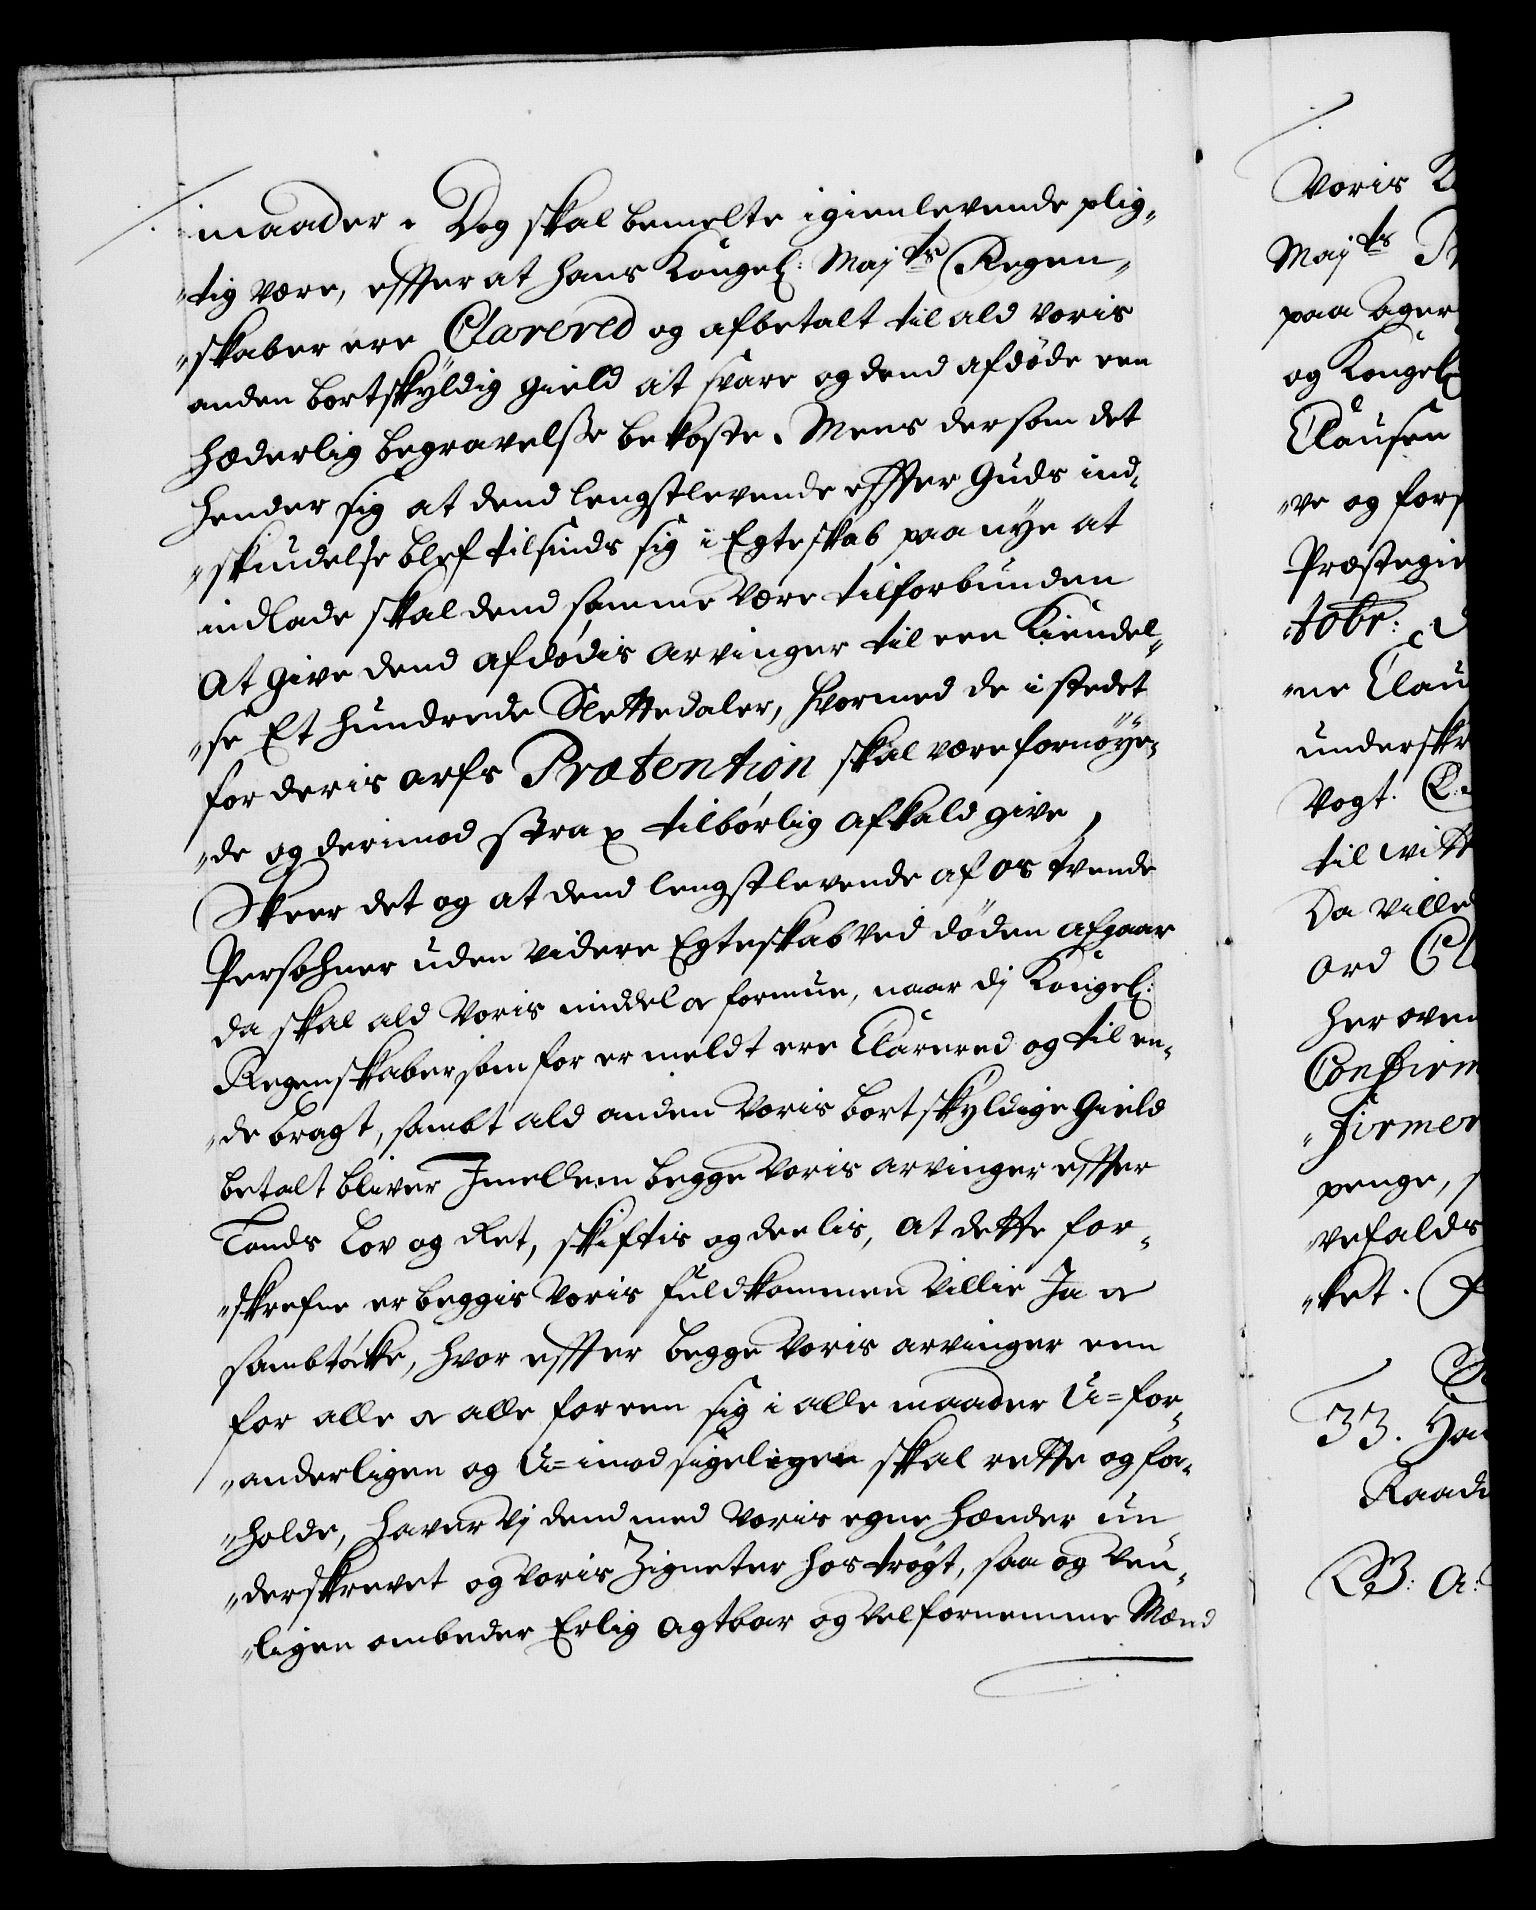 maader. Dog skal bemelte igienlevende plig„
„tig være, effter at hans Kongel: Majts Regen„
„skaber ere Clarered og afbetalt til ald voris
anden bortskyldig gield at svare og dend afdøde een
hæderlig begravelsse bekoste. Mens dersom det
hender sig at dend lengstlevende effter Guds ind„
„skiudelse blef tilsinds sig i Egteskab paa nye at
indlade skal dend samme være tilforbunden
At give dend afdødis arvinger til een Kiendel„
„se Et hundrede Slettedaler, hvormed de i stedet
for deris arfs Prætention skal være fornøye„
„de og derimod strax tilbørlig afkald give,
Skeer det og at dend lengstlevende af os tvende
Persohner uden videre Egteskab ved døden afgaar
da skal ald voris middel & formue, naar dj Kongel:
Regenskaber som for ermeldt ere Clarered og til en„
„de bragt, sambt ald anden voris bortskyldige Gield
betalt bliver Imellem begge voris arvinger effter
Lands Lov og Ret, skiftis og deelis, at dette for„
„skrefne er beggis voris fuldkommen villie Ja &
sambtøcke, hvor effter begge voris arvinger een
for alle & alle for een sig i alle maader U=for„
„anderligen og U=imodsigeligen skal rette og for„
„holde, haver vj dend med voris egne hænder un„
„derskrevet og voris Zigneter hos trøgt, saa og ven„
„ligen ombeder Erlig Agtbar og velfornemme Mænd
Voris
Majts
paa Ager
og Kongel:
Clausen
„ve og fors
Præstegie
„tobr:
„ne Clau
underskr
Vogt.
til vitt
Da ville
ord
her oven
Confirm
„firmer
penge,
„vefalds
„ket.
33.
Raad